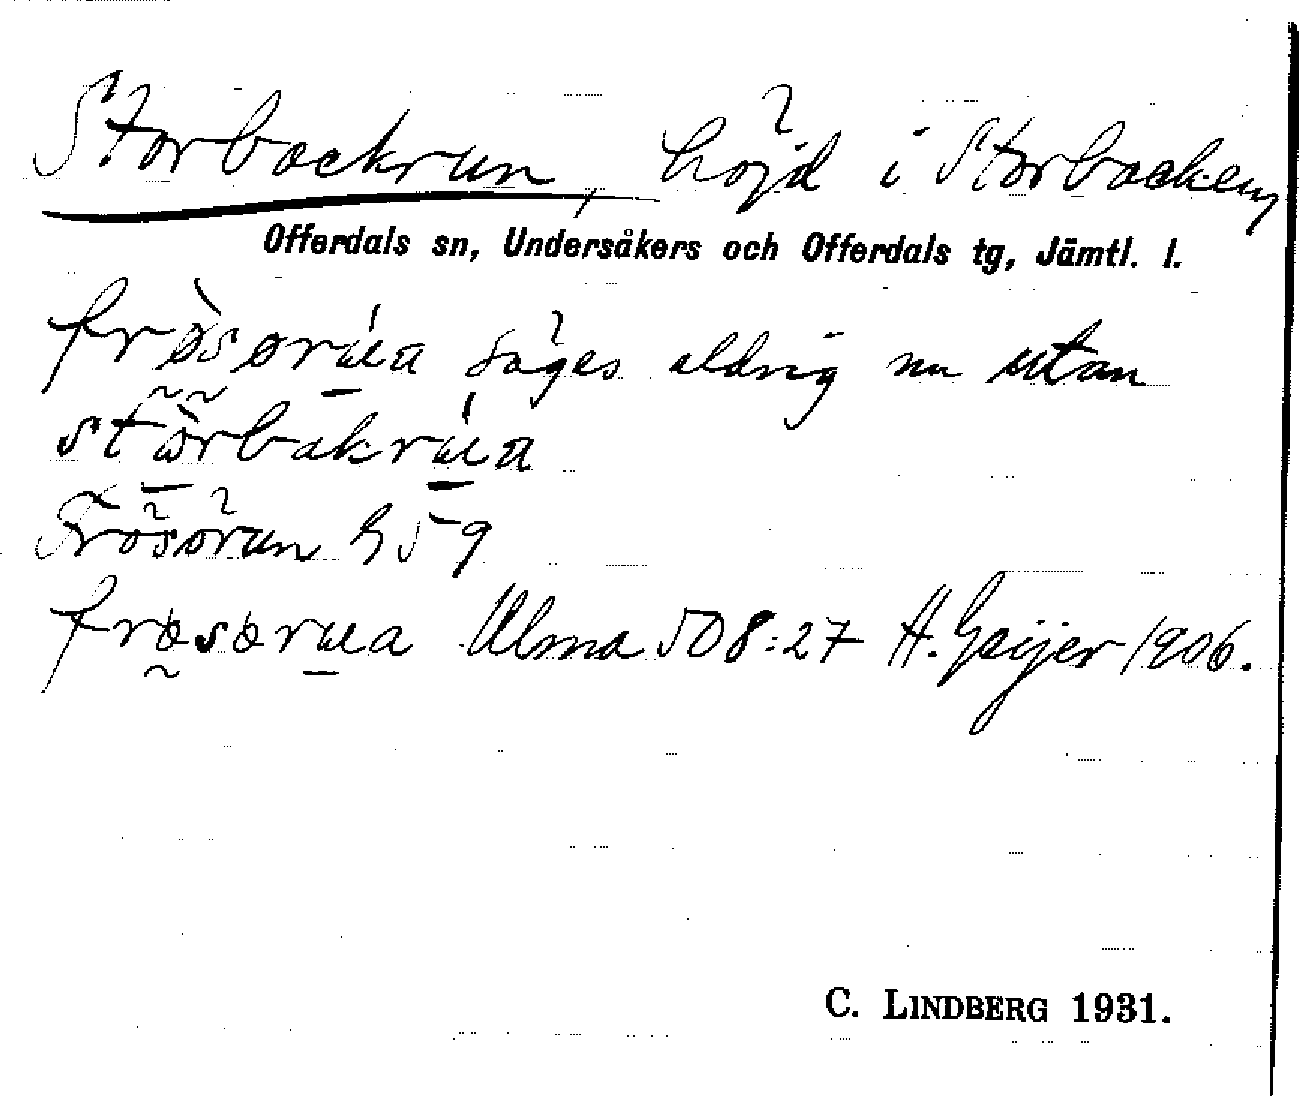 Storbackrun, höjd i Storbacken,
Offerdals sn, Undersåkers och Offerdals tg, Jämtl. l.
frøsørua säges aldrig nu utan
storbakrua
Frösörun G 59
frøsørua Ulma 508:27 H. Geijer 1906.
C. LINDBERG 1931.